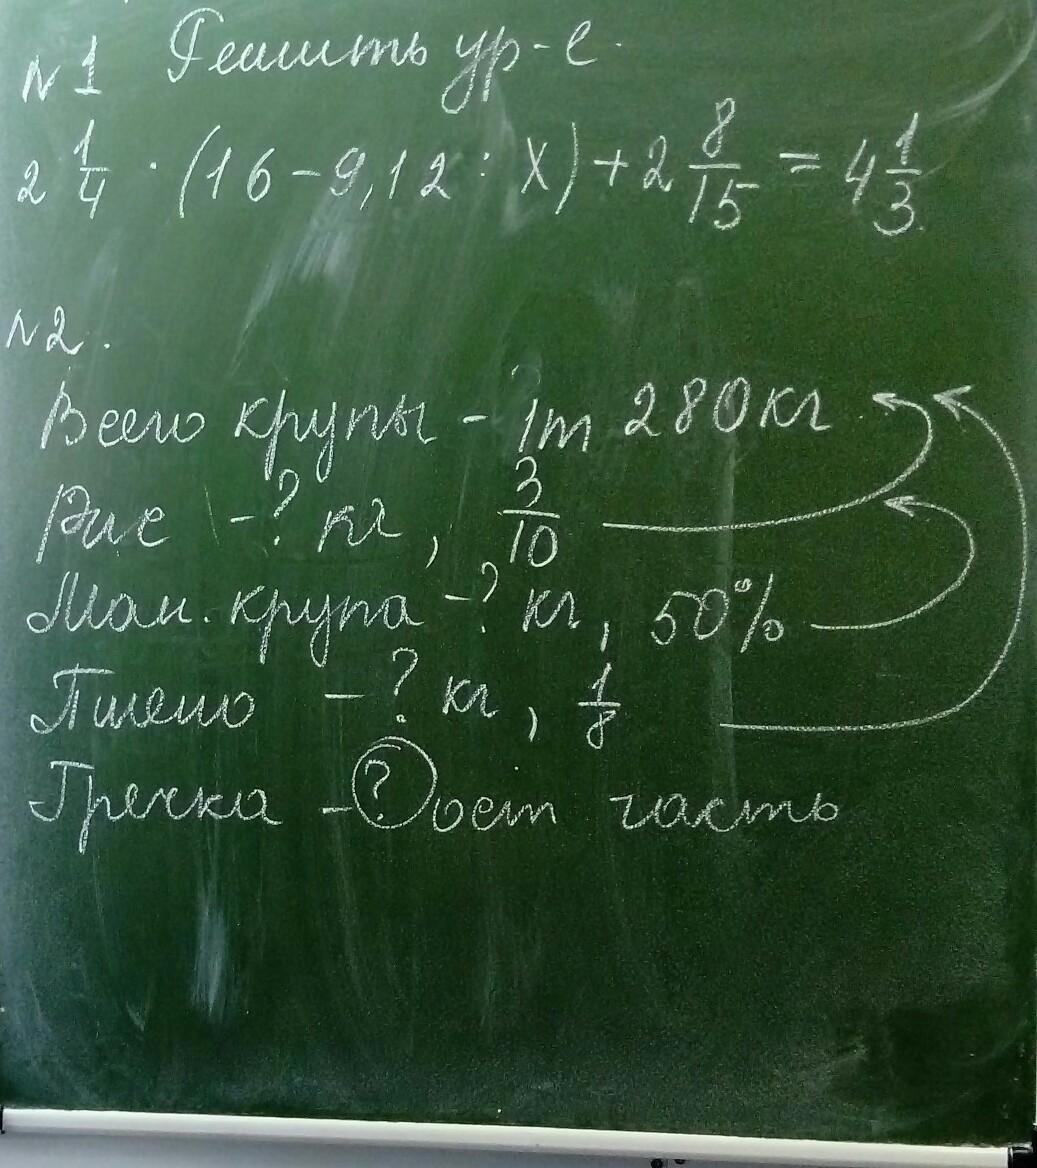 №1 Решить ур-е.
2 1/4 · (16 - 9,12 : X) + 2 8/15 = 4 1/3.
№2.
Всего крупы - 1т 280 кг.
Рис - ? кг, 3/10
Ман. крупа - ? кг, 50%
Пшено - ? кг, 1/8
Гречка - ? ост часть